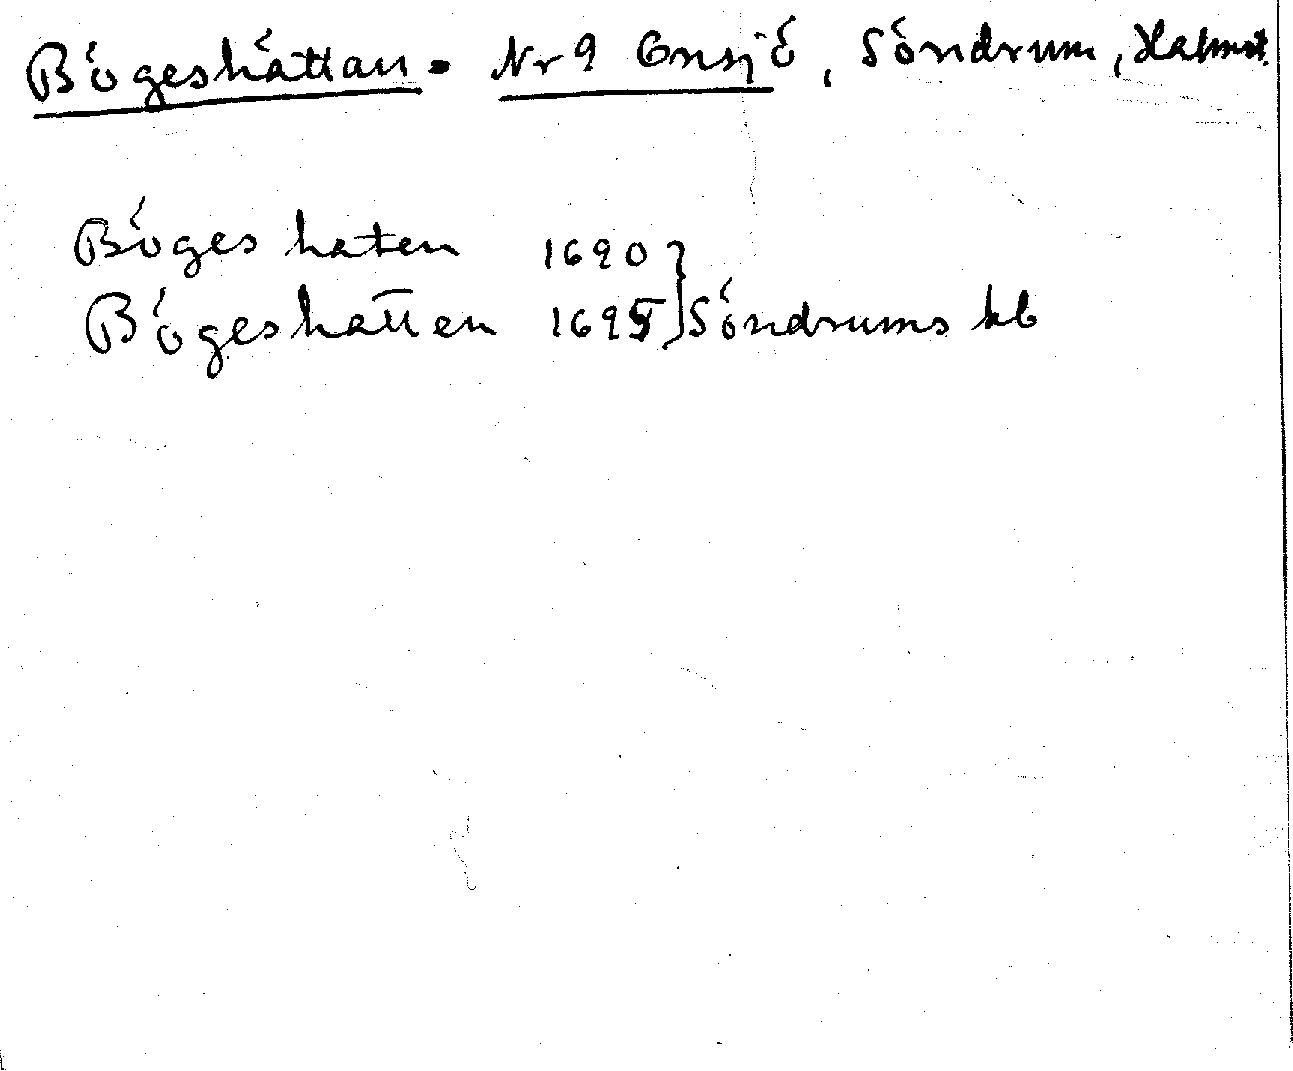 Bögeshättan. Nr 9 Ensjö, Söndrum, Halmst.
Böges haten 1690 }
Bögeshatten 1695 } Söndrums kb